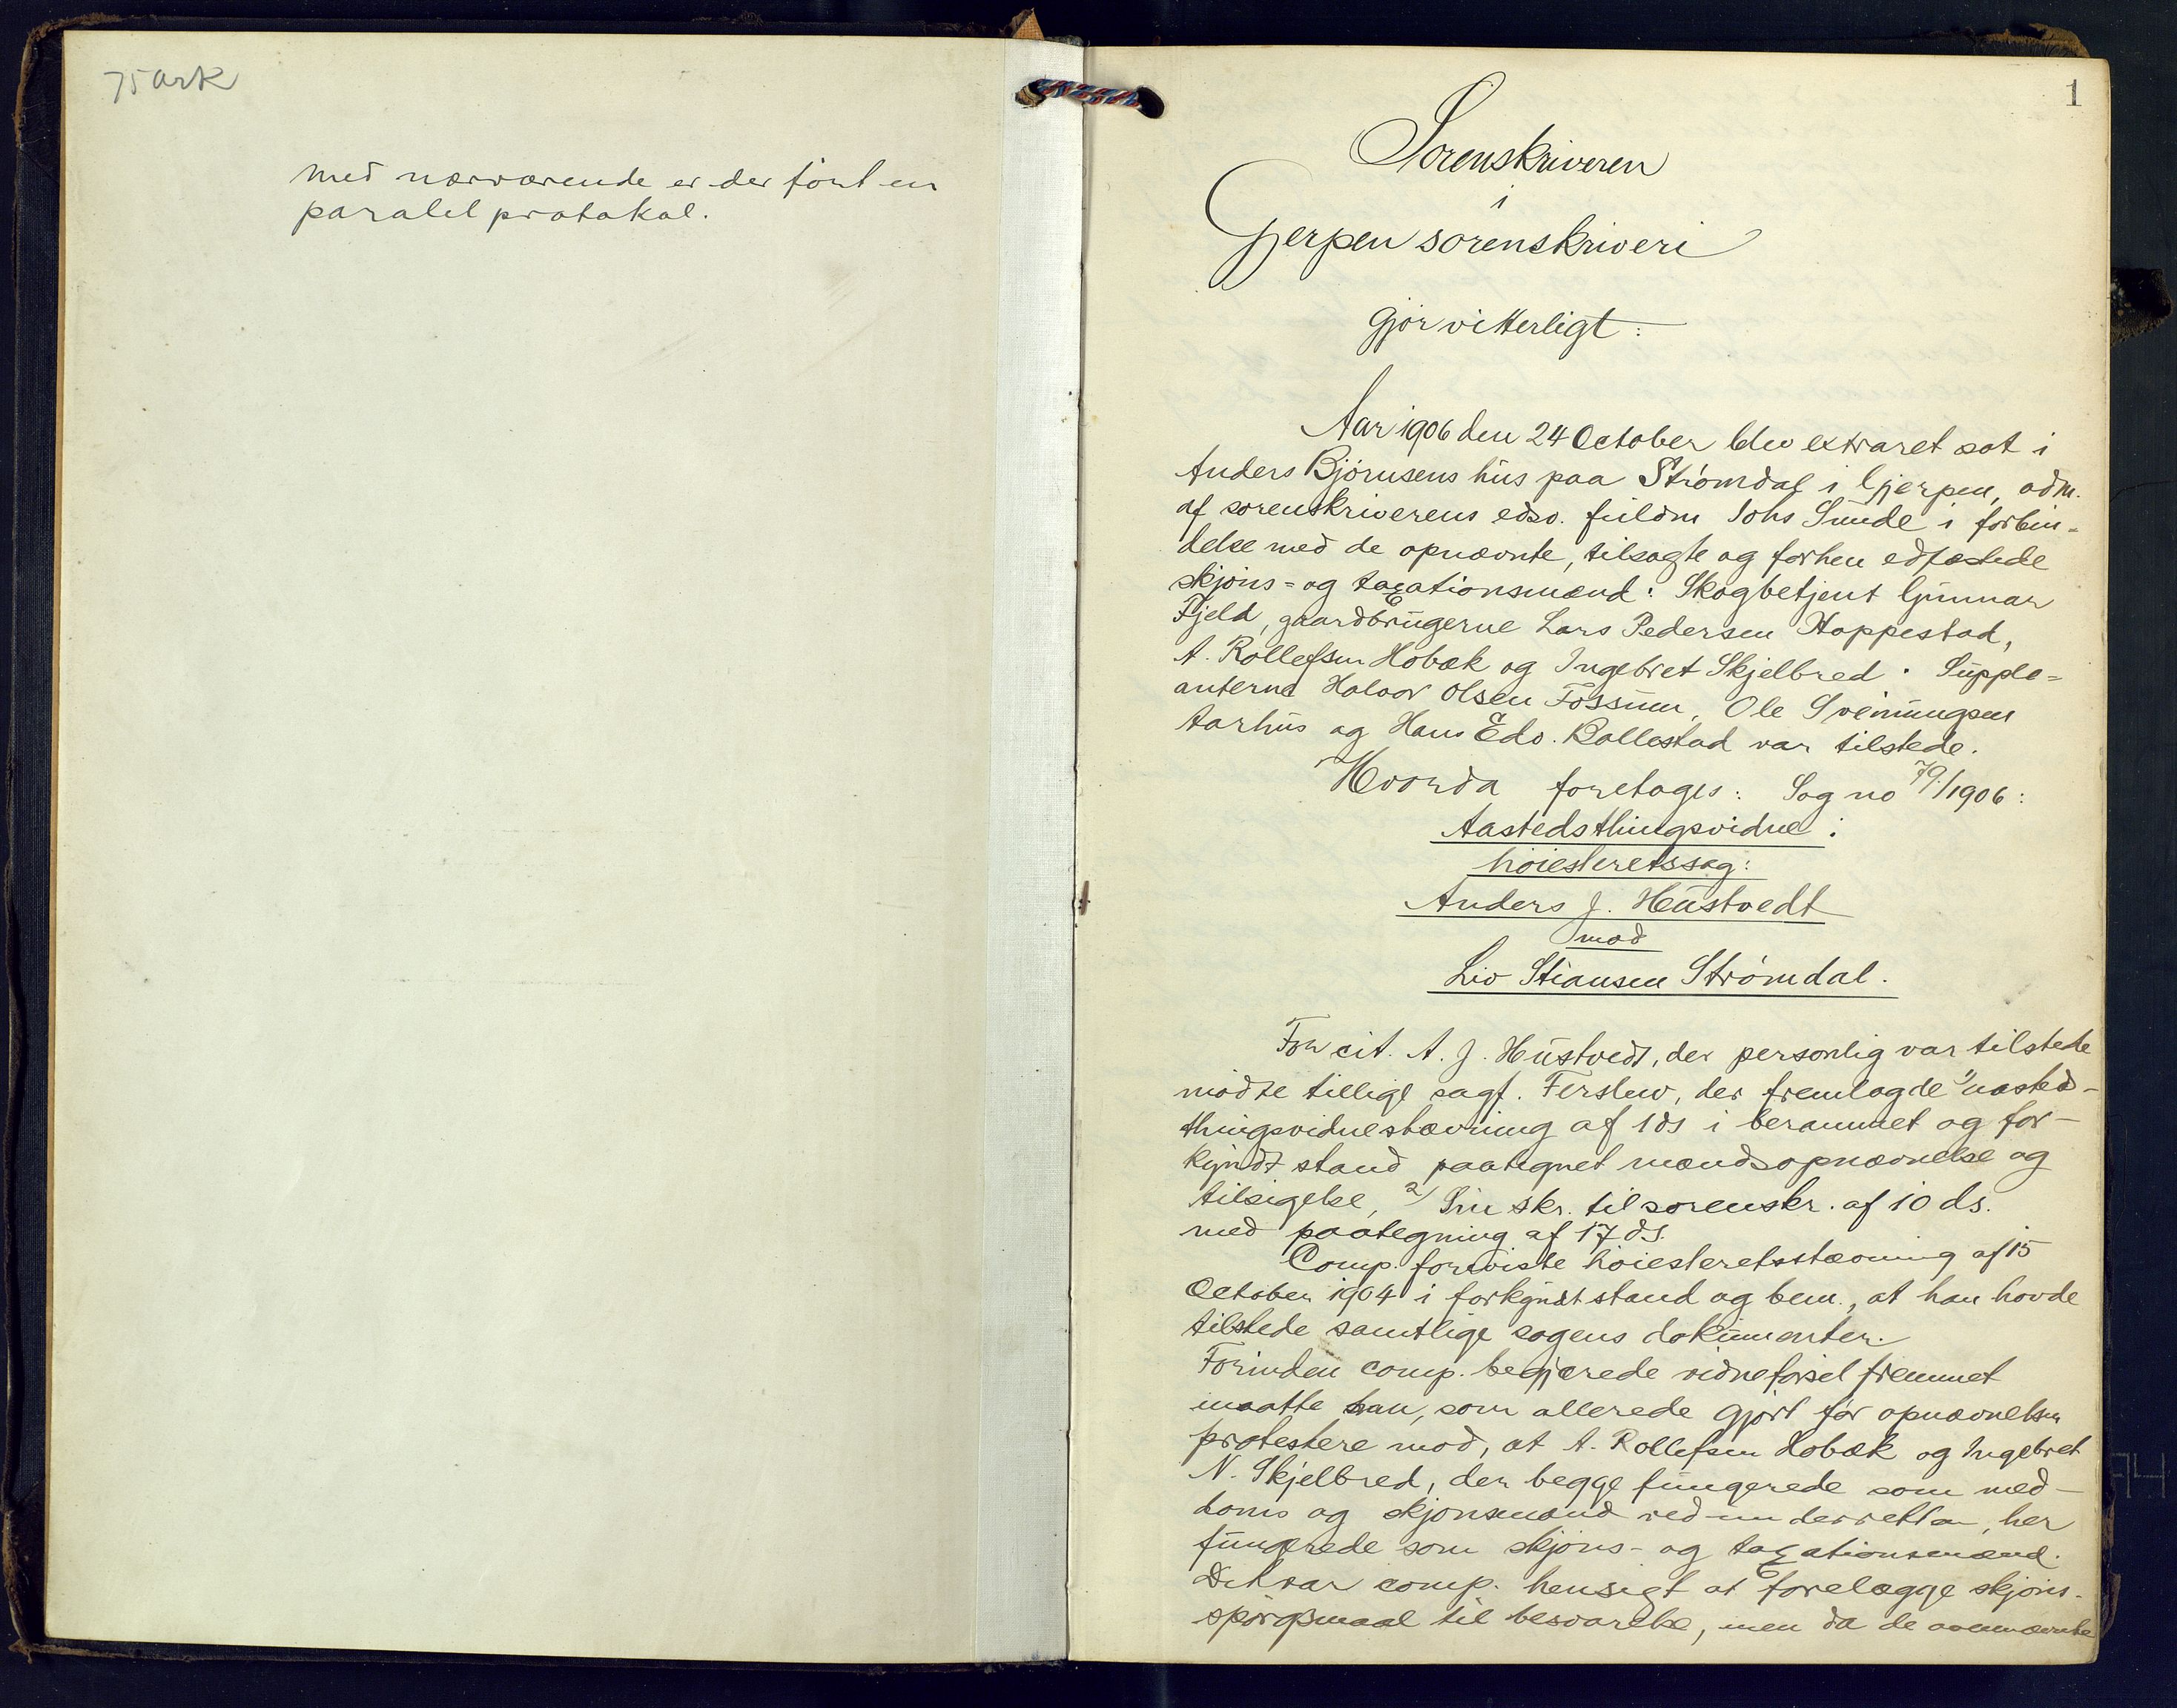 75 ark
med nærværende er der ført en
paralel protokol.
1
Sorenskriveren
i
Gjerpen sorenskriveri
gjør vitterligt:
Aar 1906 den 24 October blev extraret sat i
Anders Bjørnsens hus paa Strømdal i Gjerpen, adm.
af sorenskriverens edsv. fuldm Johs Sunde i forbin-
delse med de opnævnte, tilsagte og forhen edfæstede
skjøns- og taxationsmænd: Skogbetjent Gunnar
Fjeld, gaardbrugerne Lars Pedersen Hoppestad,
A. Rollefsen Hobæk og Ingebret Skjelbred. Supple-
anterne Halvor Olsen Fossum, Ole Sveinungsen
Aarhus og Hans Edv. Bollestad var tilstede.
Hvorda foretoges: Sag no 79/1906:
Aastedsthingsvidne i
høiesteretssag:
Anders J. Hustvedt
mod
Liv Stiansen Strømdal.
For cit. A. J. Hustvedt, der personlig var tilstede
mødte tillige sagf. Ferslew, der fremlagde 1/ aasteds-
thingsvidnestævning af 1 ds i berammet og for-
kyndt stand paategnet mændsopnævnelse og
tilsigelse, 2/ Sin skr. til sorenskr. af 10 ds.
med paategning af 17 ds.
Comp. foreviste høiesteretsstævning af 15
October 1904 i forkyndt stand og bem., at han havde
tilstede samtlige sagens dokumenter.
Forinden comp. begjærede vidneførsel fremmet
maatte han, som allerede gjort før opnævnelsen
protestere mod, at A. Rollefsen Hobæk og Ingebret
N. Skjelbred, der begge fungerede som med-
doms og skjønsmænd ved underretten, her
fungerede som skjøns- og taxationsmænd.
Det var comp. hensigt at forelægge skjøns-
spørgsmaal til besvarelse, men da de ovennævnte